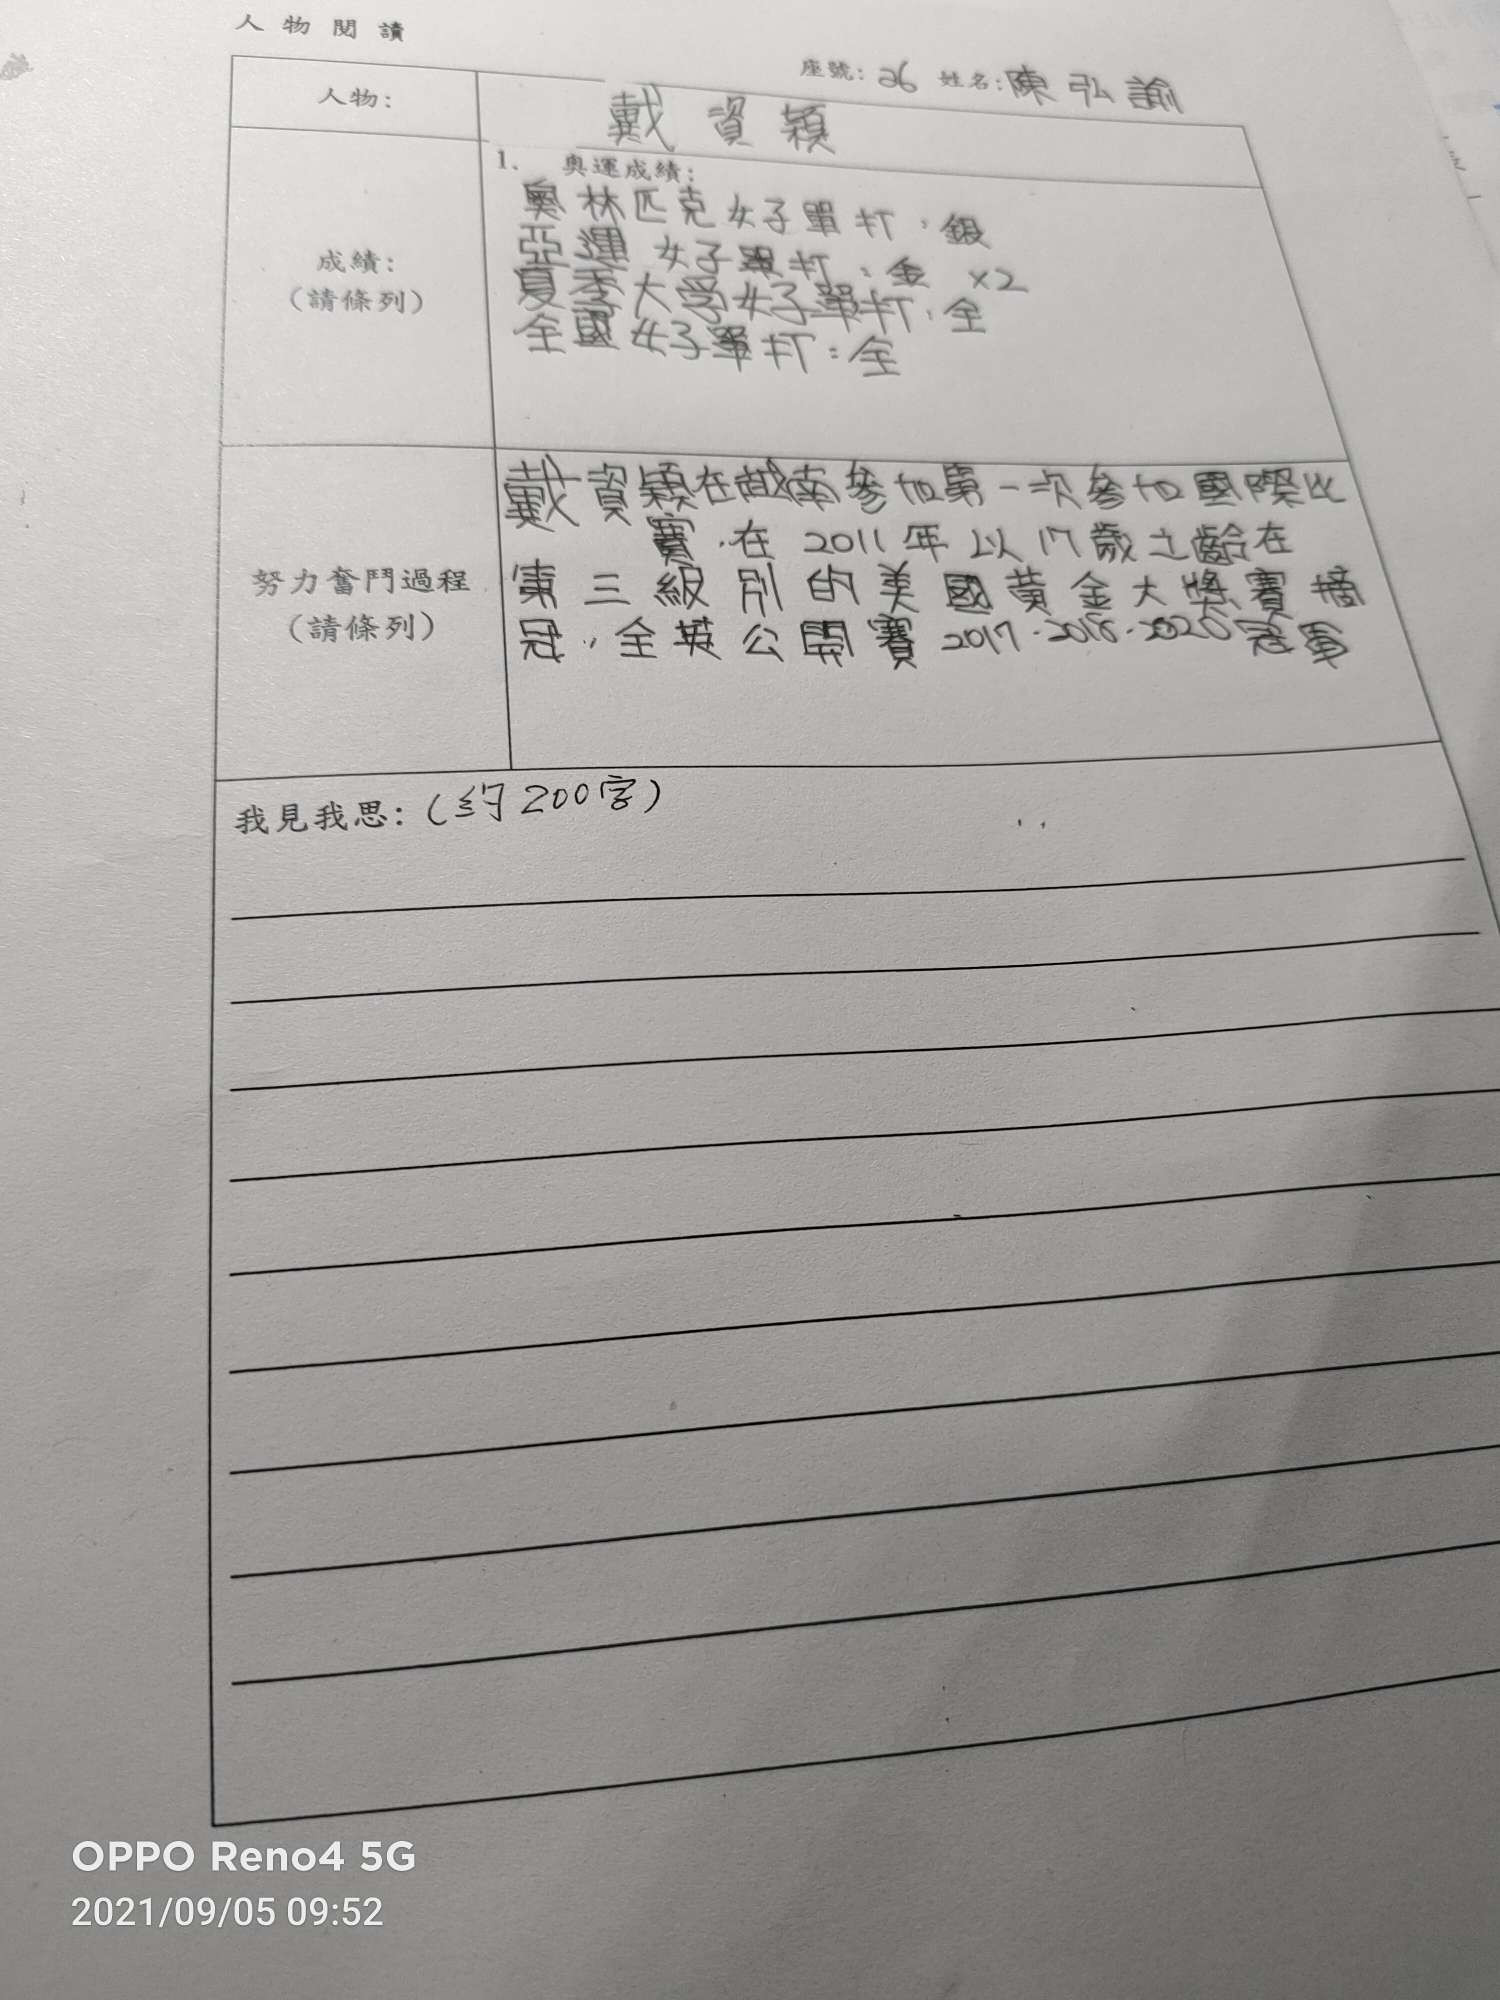 人物閱讀
座號:26 姓名:陳弘諭
人物:
戴資穎
成績:
(請條列)
1. 奧運成績:
奧林匹克女子單打:銀
亞運女子單打:金 ×2
夏季大学女子單打:金
全國女子單打:金
努力奮鬥過程
(請條列)
戴資穎在越南參加第一次參加國際比
賽.在2011年以17歲之齡在
第三級別的美國黃金大獎賽摘
冠,全英公開賽2017.2018.2020冠軍
我見我思:(約200字)
OPPO Reno4 5G
2021/09/05 09:52